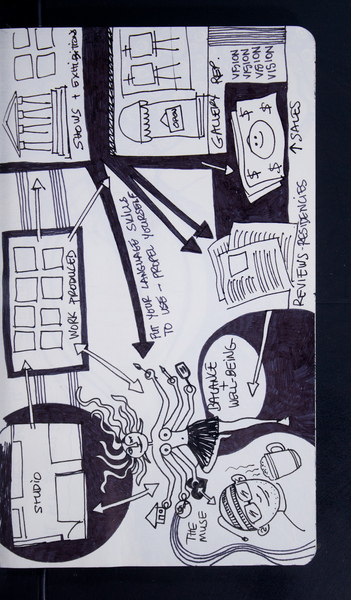 STUDIO
WORK PRODUCED
SHOWS + EXHIBITIONS
PUT YOUR LANGUAGE SKILLS
TO USE – PROPEL YOURSELF
OPEN
GALLERY REP.
THE
MUSE
BALANCE
+
WELL-BEING
VISION
VISION
VISION
VISION
$ $
$ $
REVIEWS-RESIDENCIES
↑ SALES